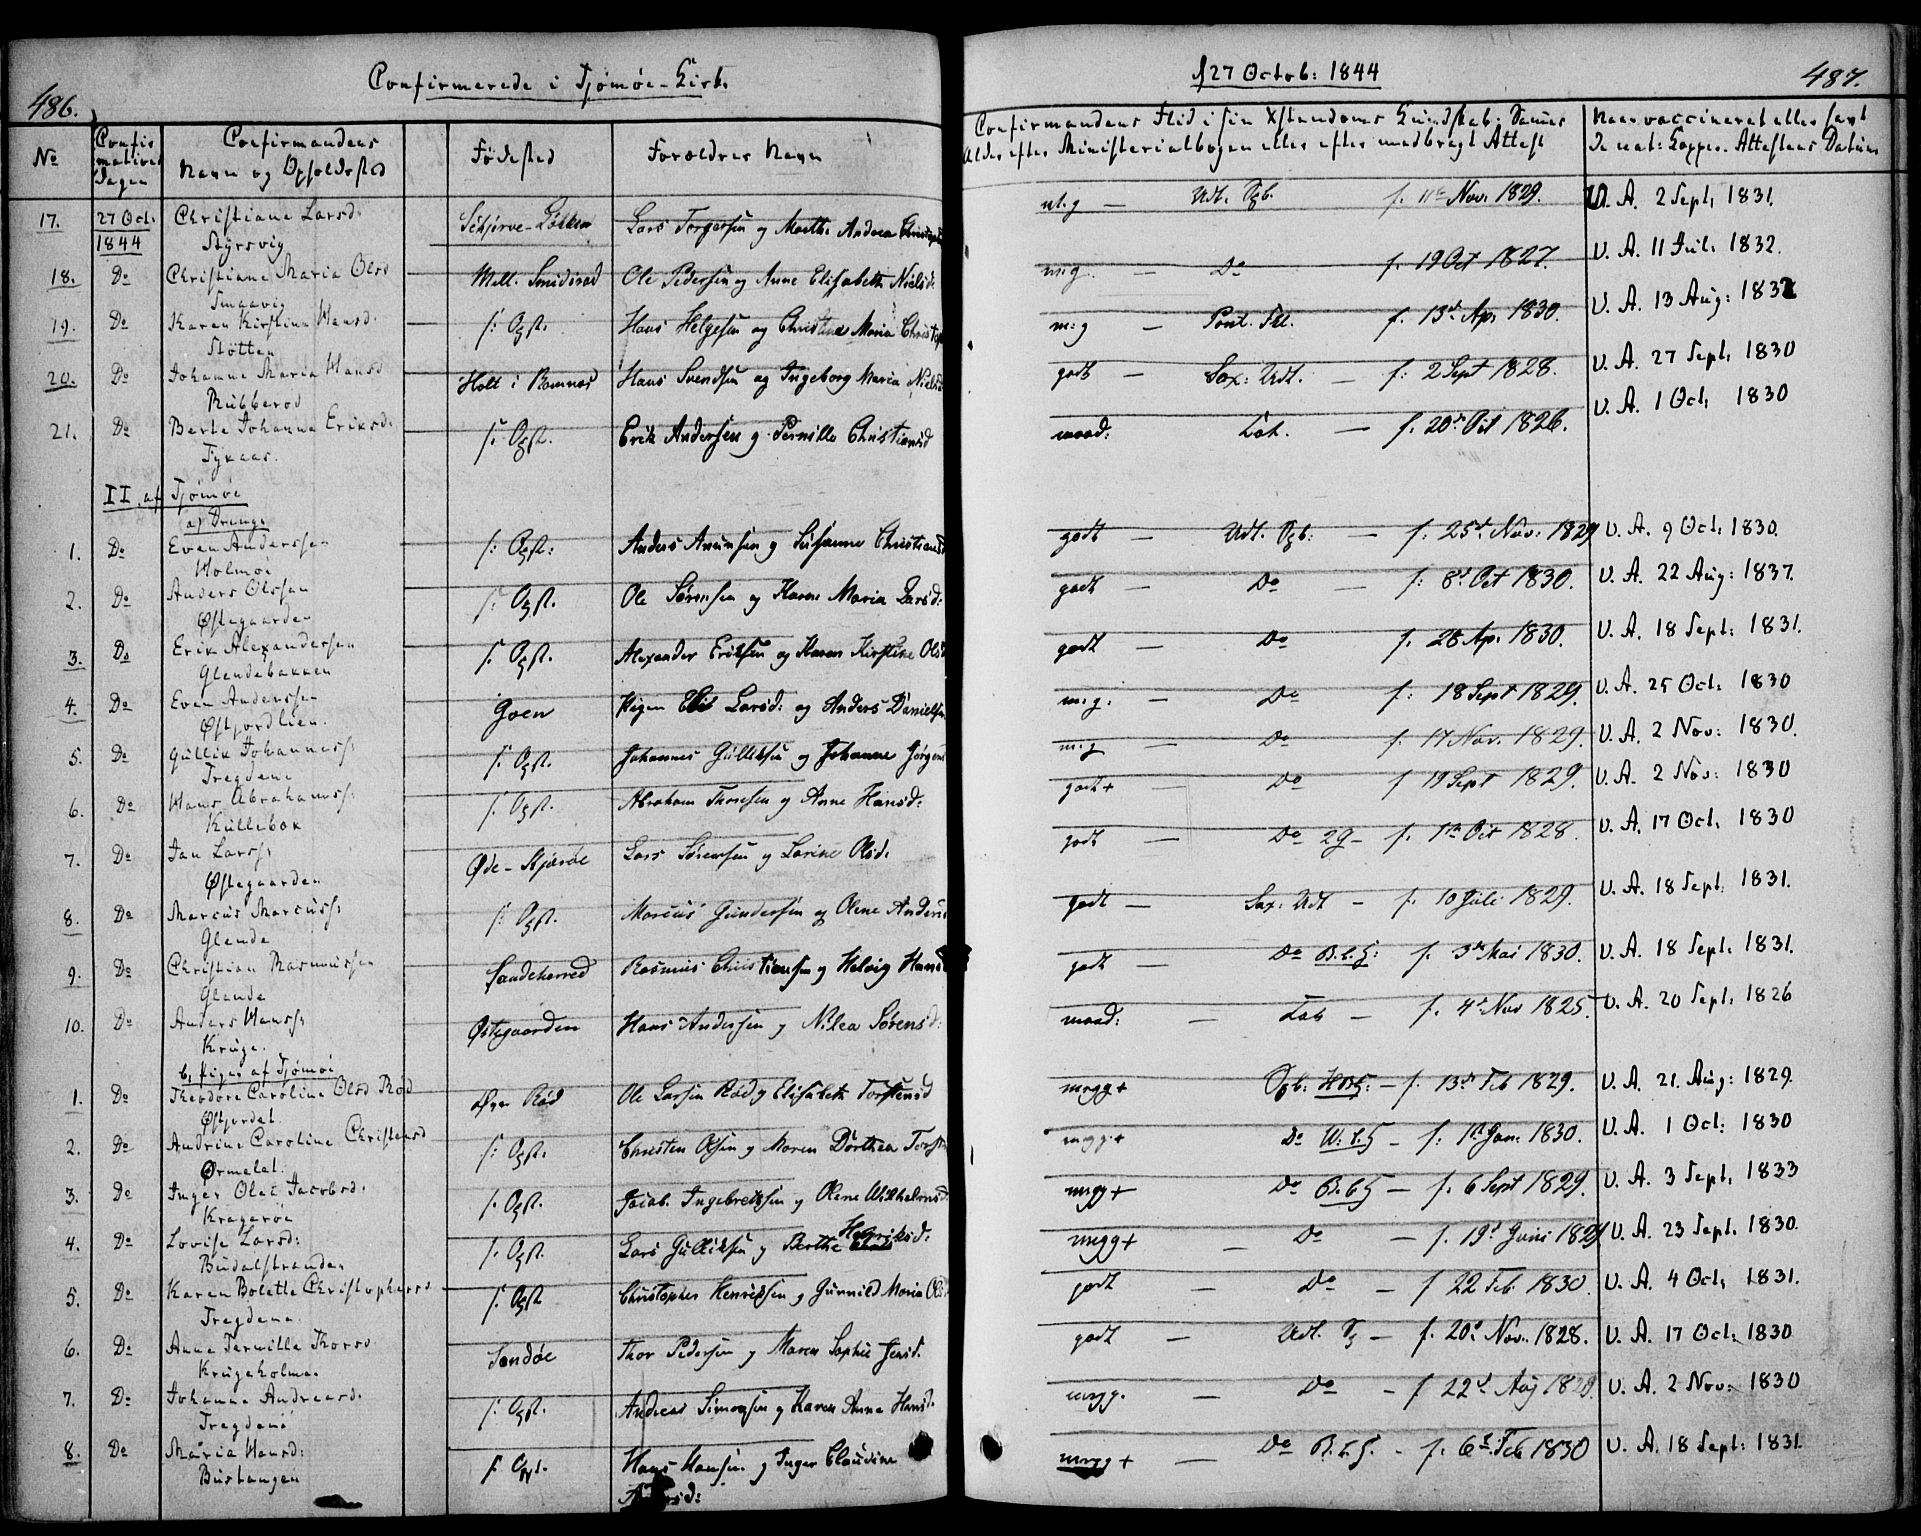 486.
Confirmerede i Tjømøe-Kirk.
No
Confirmations Dagen
Confirmandens
Navn og Opholdsted
Fødested
Forældres Navn
17. 27 Oct. 1844 Christiane Larsd.
Lars Torgersen og Marthe Andrea
18. Do Christiane Maria Olsd Ole Pedersen og Anne Elisabeth Nielsd.
19. Do Karen Kirstine Hansd. f: Opst. Hans Helgesen og Christine Maria
Støtten
20. Do Johanne Maria Hansd Holt i Ramnes Hans Svendsen og Ingeborg Maria Nielsd
Rubberød
21. Do Berte Johanne Eriksd. f: Opst. Erik Andersen og Pernille Christiansd
II af Tjømøe
af Drenge
1. Do Even Anderssen f: Opst: Anders Susanne Christiansd
Holmen
2. Do Anders Olssen f: Opst. Ole Sørensen og Karen Maria Larsd:
Østegaarden
3. Do Erik Alexandersen f: Opst. Alexander Eriksen og Karen Kirstine Olsd
Glendebakken
4. Do Even Anderssen Goen Pigen Larsd: og Anders Danielsen
Østjordlien.
5. Do Gullik Johanness: f: Opst. Johannes Gulliksen og Johanne Jørgensd
Tregdene
6. Do Hans Abrahamss: f: Opst. Abraham Thoresen og Anne Hansd:
Kullebok
7. Do Jan Larss: Øde-Kjørøe Lars Sørensen og Larine Olsd.
Østegaarden
8. Do Marcus Marcuss: f: Opst. Marcus Gundersen og Olene Andersd
Glende
9. Do Christian Rasmussen Sandeherred Rasmus Christiansen og Helvig Hansd
Glende
10. Do Anders Hanss: Østegaarden Hans Andersen og Nilea Sørensd:
Kruge.
b, Piger af Tjømøe
1. Do Theodore Caroline Olsd Rød Øvre Rød Ole Larsen Rød og Elisabeth Torstensd
Østjordet.
2. Do Andrine Caroline Christensd f: Opst. Christen Olsen og Maren Dorthea
Ørmelet.
3. Do Inger Olea Jacobsd. f: Opst. Jacob Ingebretsen og Olene Wilhelmsd.
Kragerøe
4. Do Lovise Larsd: f: Opst. Lars Gulliksen og Berthe Henriksd:
Budalstranden
5. Do Karen Bolette Christophersd f: Opst Christopher Henriksen og Gunnild Maria
Tregdene.
6. Do Anne Pernille Thorsd. Sandøe Thor Pedersen og Maren Sophie Jensd.
Krugeholme.
7. Do Johanne Andreasd. f: Opst. Andreas Simonsen og Karen Anne Hansd.
Tregdene
8. Do Maria Hansd: f: Opst. Hans Hansen og Inger Claudine
Bustangen
d 27 Octob: 1844
487.
Confirmandens Flid i sin Xstendoms Kundskab; Sammes
Alder efter Ministerialbogen eller efter medbragt Attest
Naar vaccineret eller havt
de nat: Kopper. Attestens Datum
m.g — Udt. Ogb. f. 11te Nov. 1829. V. A. 2 Sept. 1831.
m.g — Do f. 19 Oct 1827. V. A. 11 Jul: 1832.
m.g — Pont. f. 13de Apr 1830. V. A. 13 Aug: 1832
godt — Sax: Udt. — f: 2 Sept 1828. V. A. 27 Sept. 1830
maad: — f. 20de Oct 1826. V. A. 1 Oct. 1830
godt — Udt. Ogb: — f. 25de Nov: 1829 V. A. 9 Oct. 1830.
godt — Do — f: 8de Oct 1830. V. A. 22 Aug: 1837.
godt — Do f. 28 Apr. 1830. V. A. 18 Sept: 1831.
m.g. — Do f: 18 Sept 1829. V. A. 25 Oct: 1830
m.g — Do f. 17 Nov. 1829. V. A. 2 Nov: 1830.
godt + — Do f 19 Sept 1829. V. A. 2 Nov: 1830
godt — Do 2g- f. 1te Oct 1828. V. A. 17 Oct. 1830
godt — Sax: Udt - f. 10 Juli 1829. V. A. 18 Sept. 1831.
godt — Do B.b.G: f. 3de Mai 1830. V. A. 18 Sept. 1831.
maad: — f. 4de Nov 1825. V. A. 20 Sept. 1826
mgg + Ogb. — f. 13de Feb 1829. V. A. 21. Aug: 1829.
mgg. + Do — f: 1te Jan: 1830. V. A. 1 Oct: 1830
mgg + Do B.b.G — f. 6 Sept 1829. V. A. 3 Sept. 1833
mgg + — Do — f. 19de Juni 1829 V. A. 23 Sept. 1830.
godt Do — f 22 Feb 1830. V. A. 4 Oct. 1831.
godt — Udt. Og — f. 20de Nov. 1828. V. A. 17 Oct: 1830
mgg. — Do — f 22de Aug 1829. V. A. 2 Nov: 1830
mgg + — Do B.b.G. - f. 6te Feb 1830 V. A. 18 Sept: 1831.